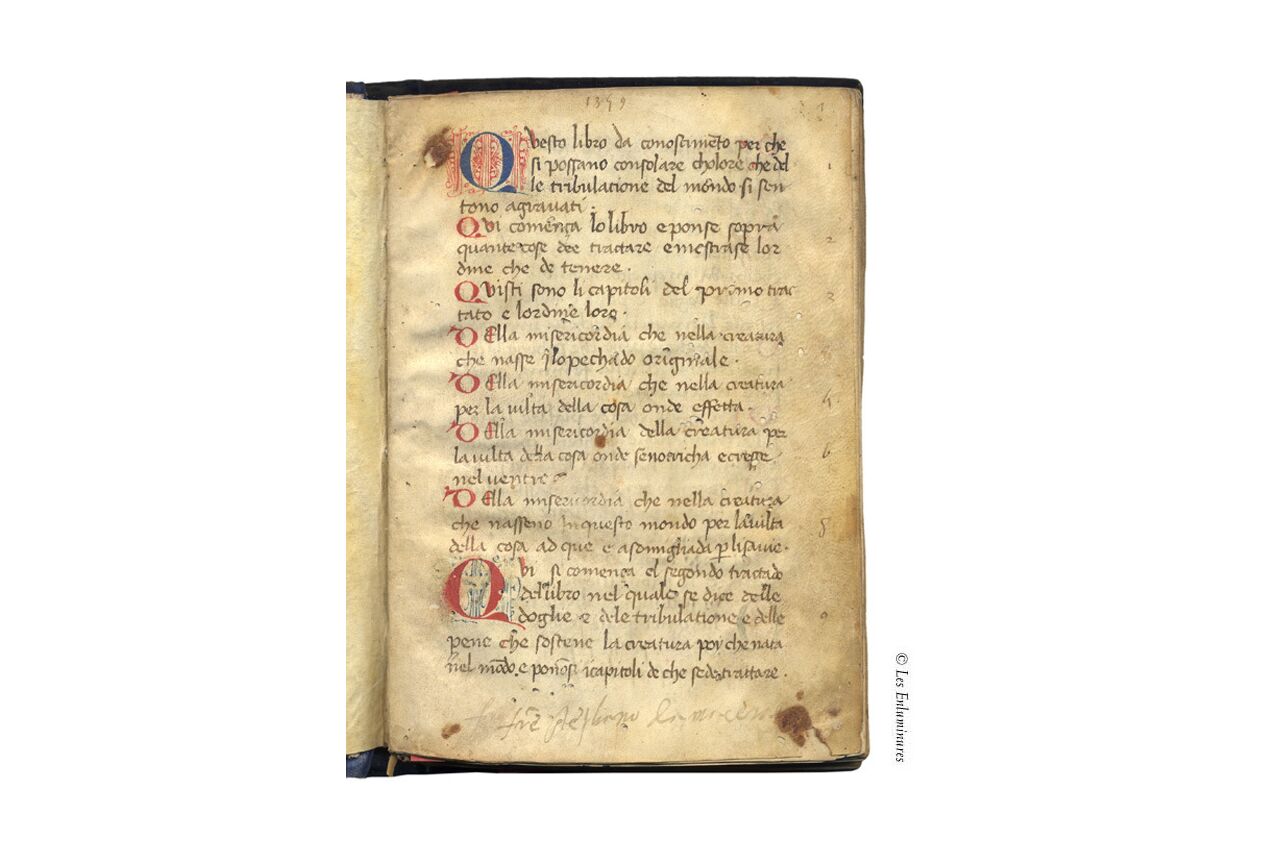 1399
1
Questo libro da conoscimẽto per che
si possano consolare choloro che del
1
le tribulatione del mondo si sen
tono agravati.
Qui comẽnça lo libro e ponse sopra
2
quante cose dee tractare e mostrase lor
dine che de tenere.
Quisti sono li capitoli del primo trac
3
tato e lordine loro.
Della misericordia che nella creatura
che nasse ĩ lo pechado originale.
Della misericordia che nella creatura
4
per la vilta della cosa onde e fatta.
Della misericordia della creatura per
6
la vilta della cosa onde se notricha e cresse
nel ventre
Della misericordia che nella creatura
che nasseno in questo mondo per la vilta
8
della cosa ad que e asomigliada p̱ li savie.
Qui si comença el segondo tractado
del libro nel quale se dice delle
doglie e dele tribulatione e delle
9
pene che sostene la creatura poy che nata
nel mõdo. e ponõsi i capitoli de che se de tractare.
frẽ
© Les Enluminures